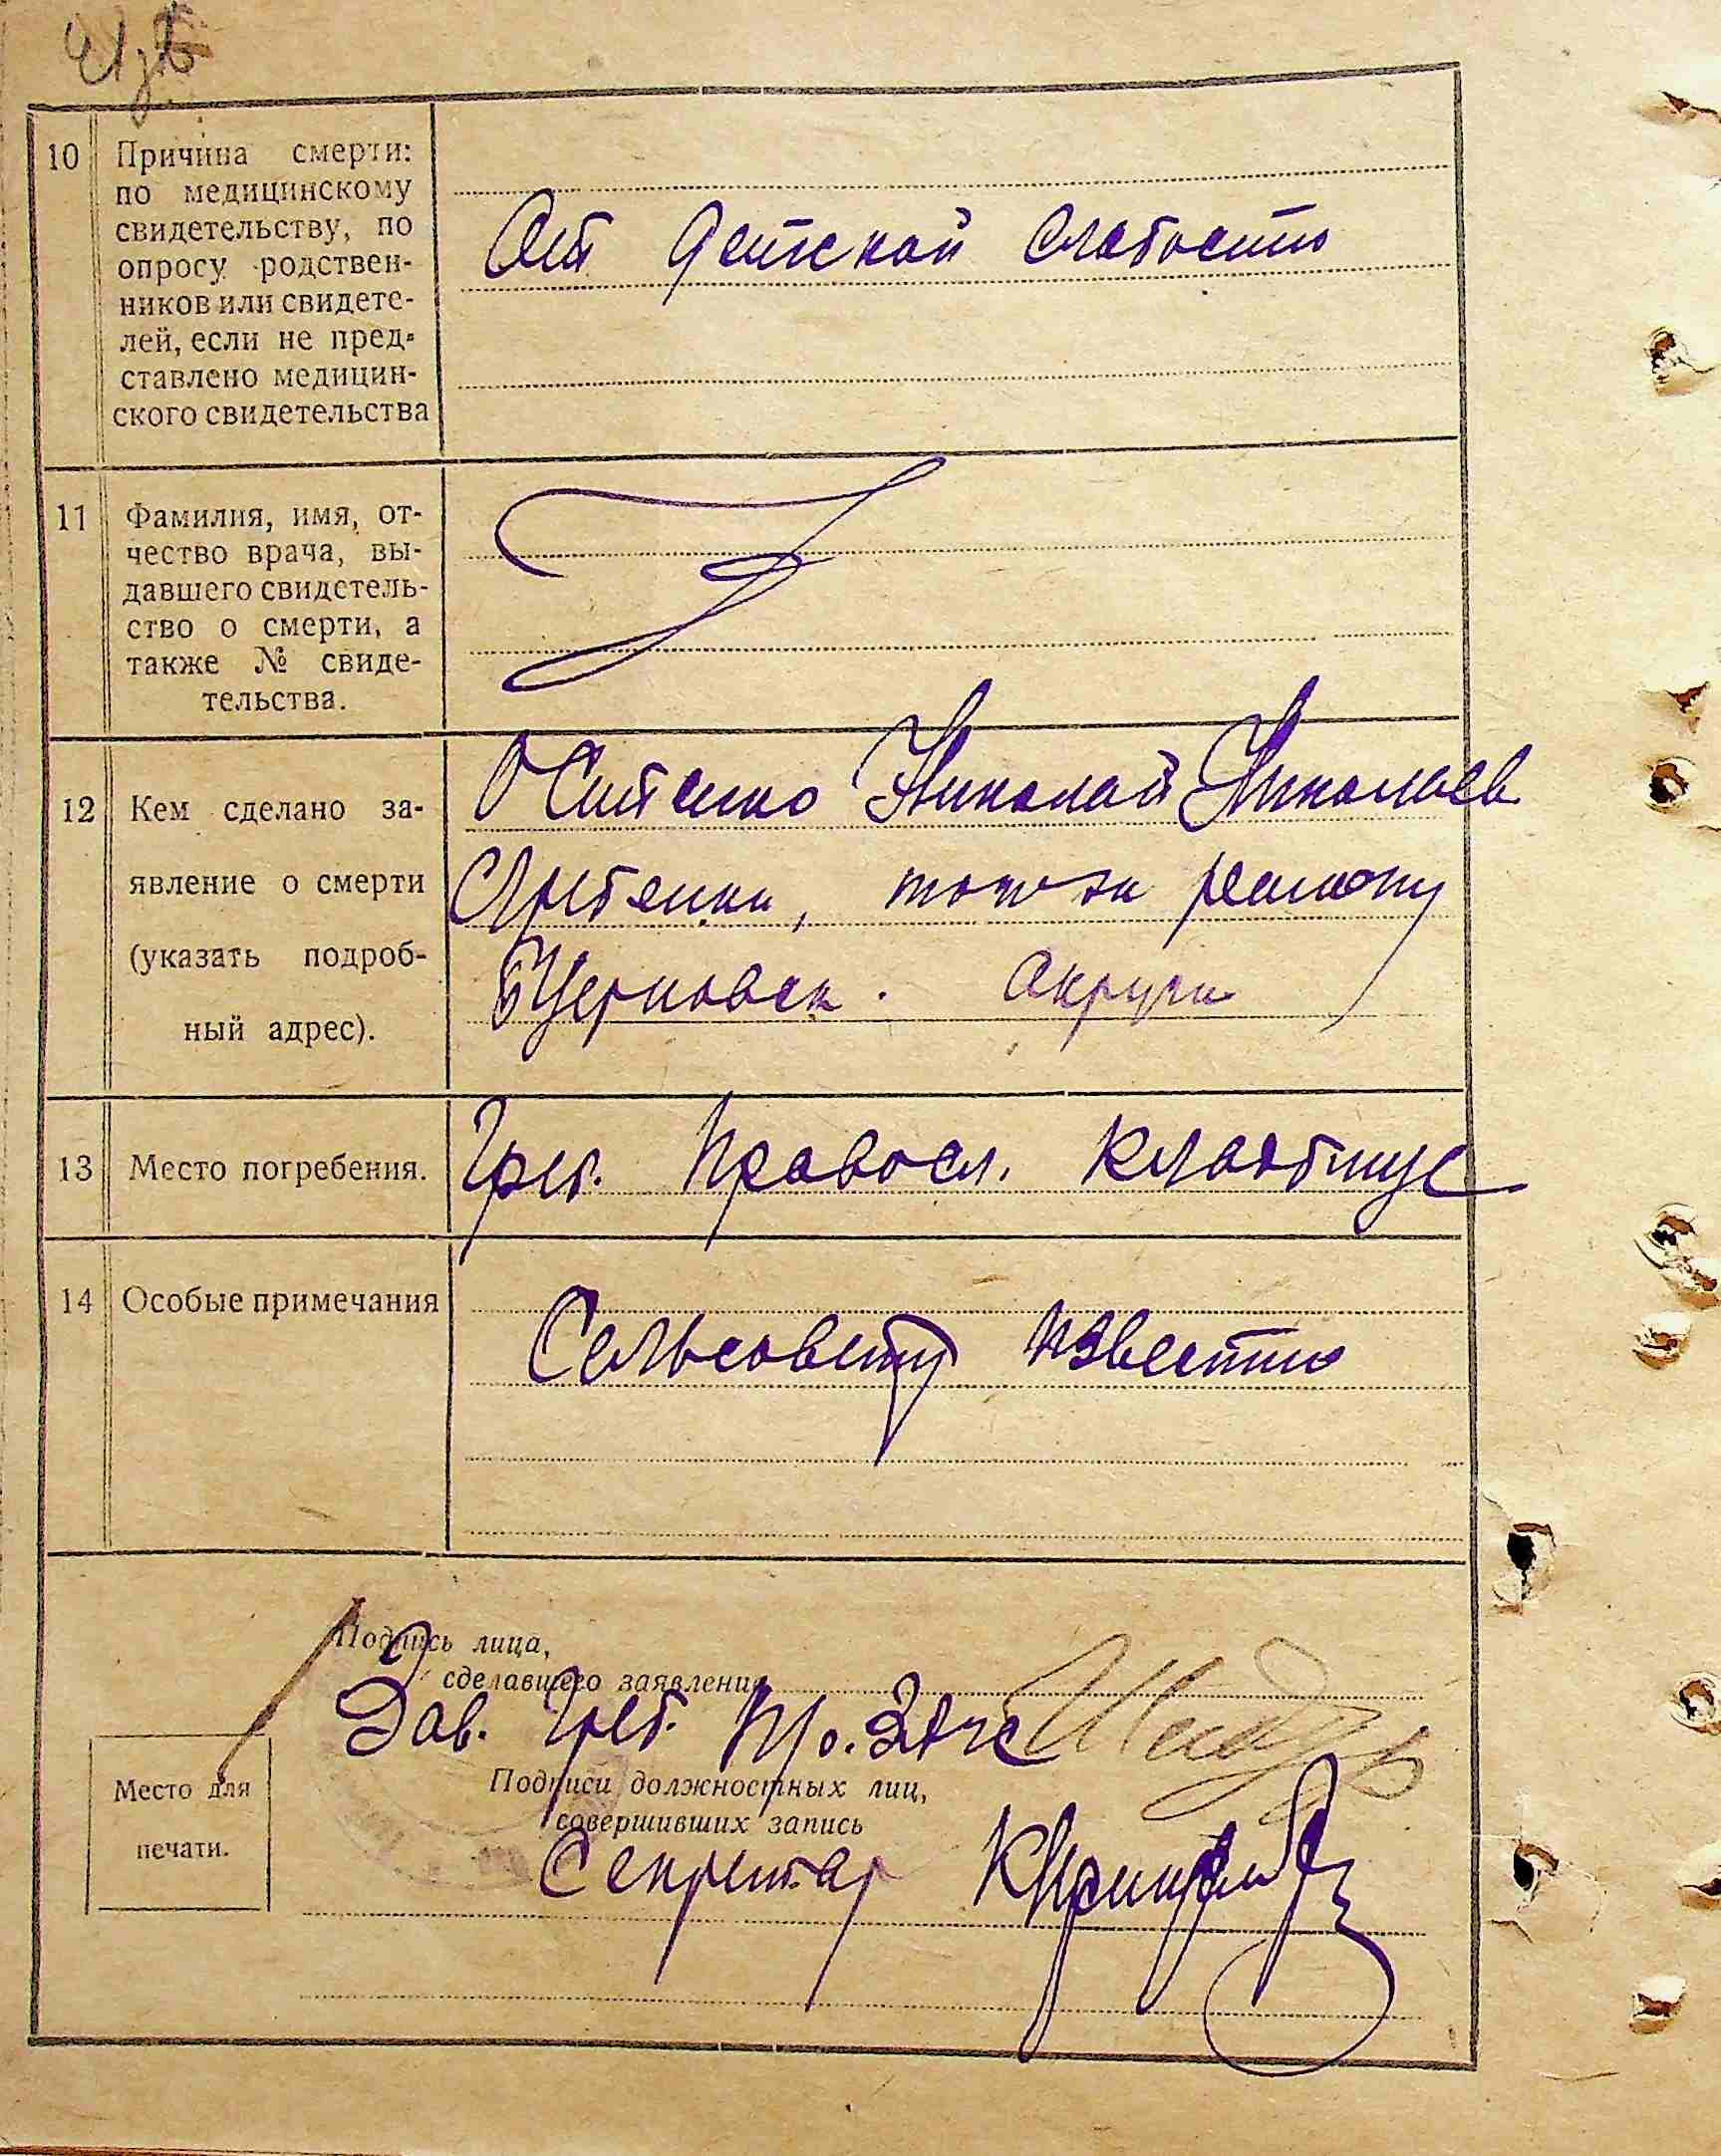 10 Причина смерти:
по медицинскому
свидетельству, по
опросу родствен-
ников или свидете-
лей, если не пред-
ставлено медицин-
ского свидетельства
От детской слабости
11 Фамилия, имя, от-
чество врача, вы-
давшего свидетель-
ство о смерти, а
также № свиде-
тельства.
12 Кем сделано за-
явление о смерти
(указать подроб-
ный адрес).
Николай Николаев
района
Б Церковск. округи
13 Место погребения.
Греб. Правосл. кладбище
14 Особые примечания
Сельсовету известно
Подпись лица,
сделавшего заявление
Зав. Греб.
Подписи должностных лиц,
совершивших запись
Секретар
Место для
печати.